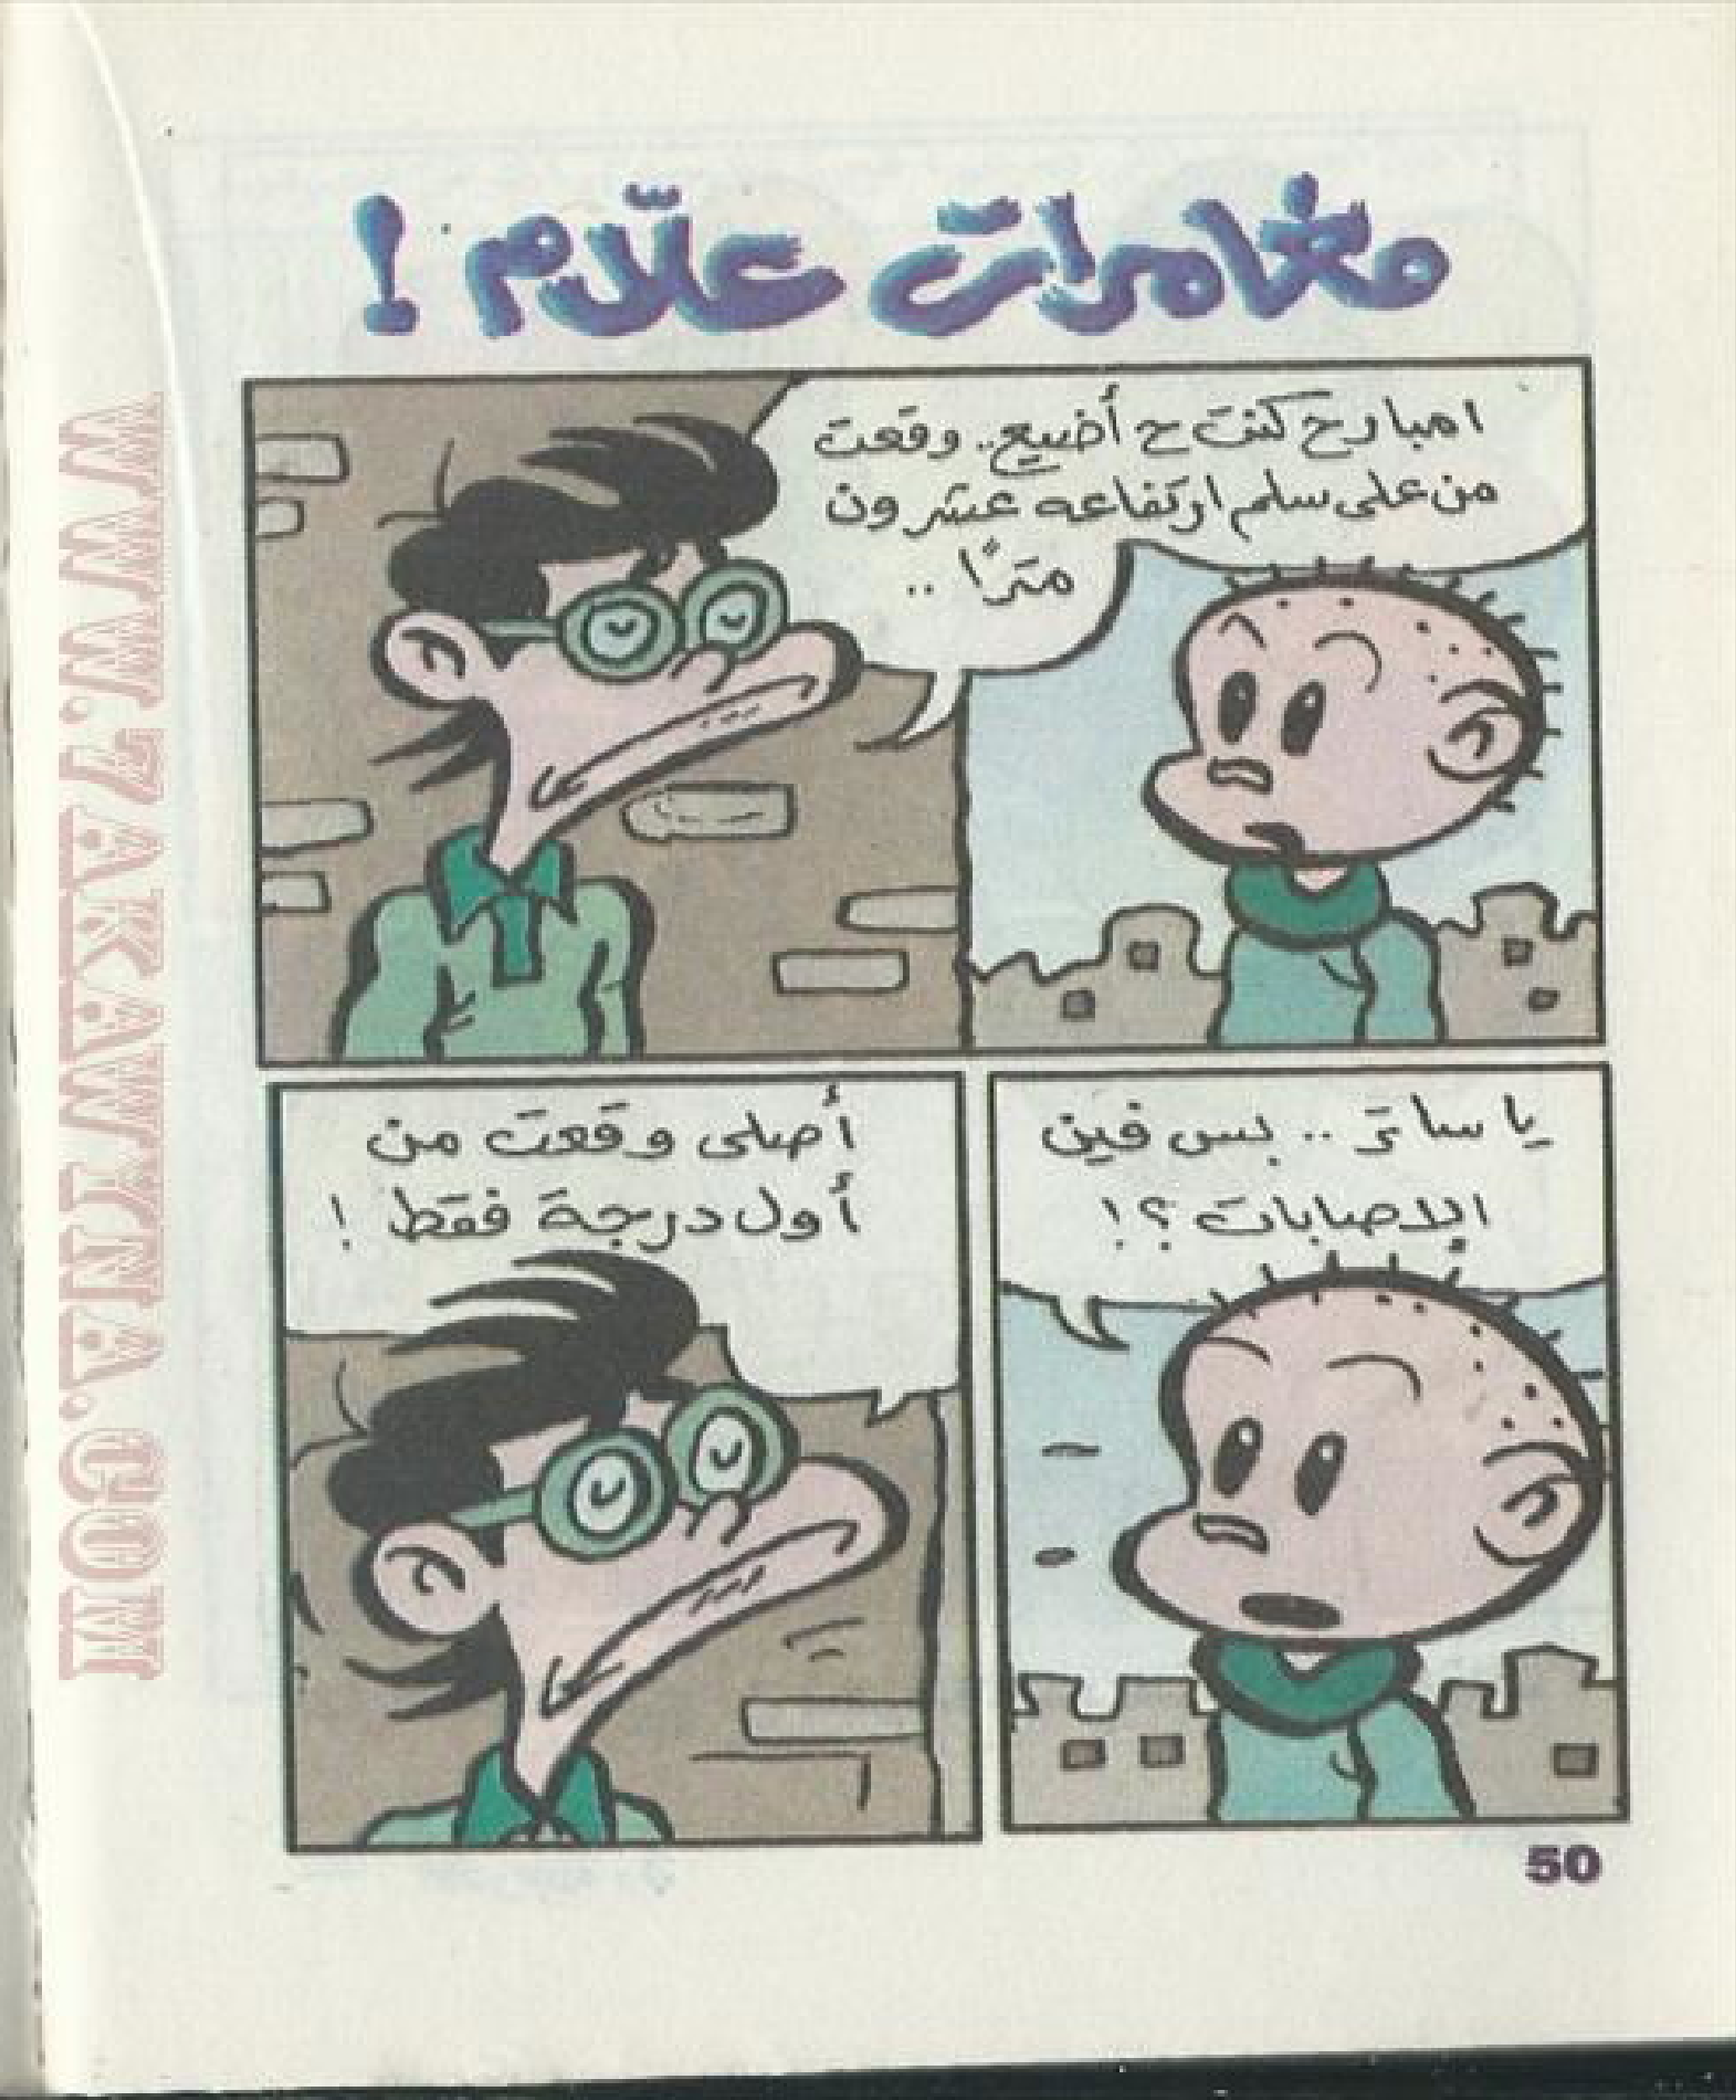 مغامرات علّام !
امبارح كنت ح أضيع.. وقعت
من على سلم ارتفاعه عشرون
مترًا ..
يا ساتر .. بس فين
الاصابات ؟!
أصلى وقعت من
أول درجة فقط !
50
WWW.7AKAWETNA.COM